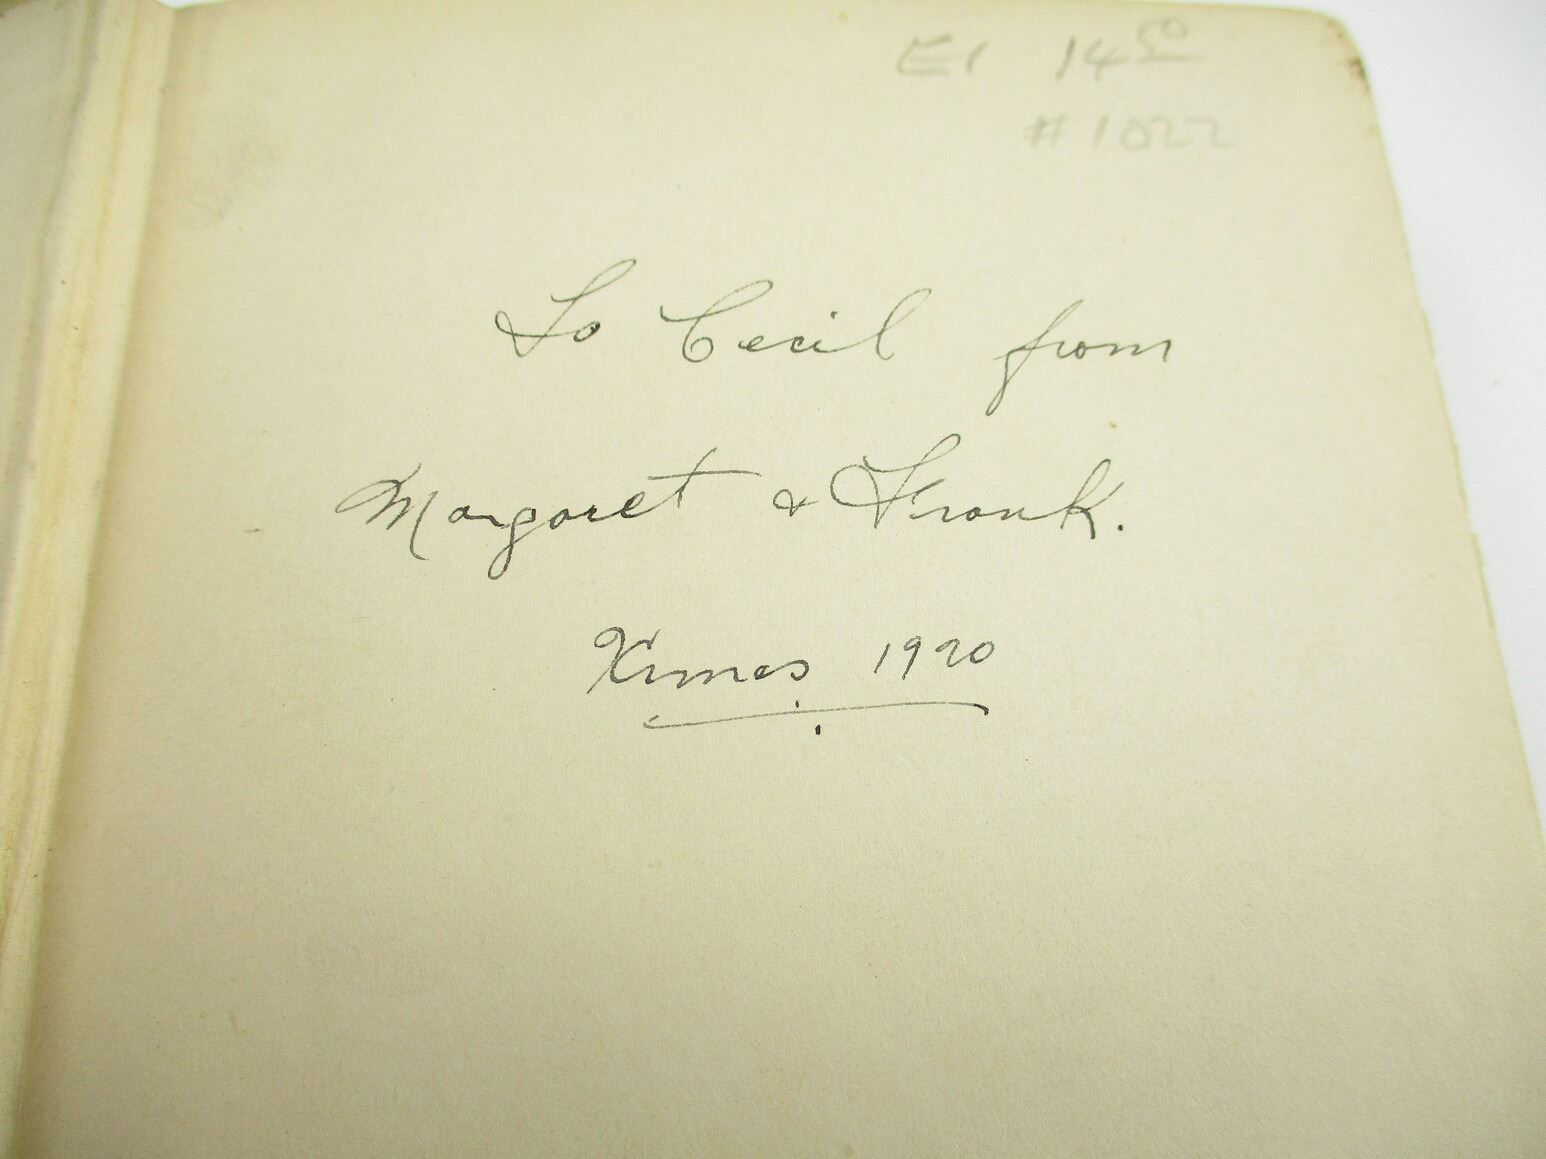 E1 14 50
#1022
To Cecil from
Margaret & Frank.
Xmas 1920